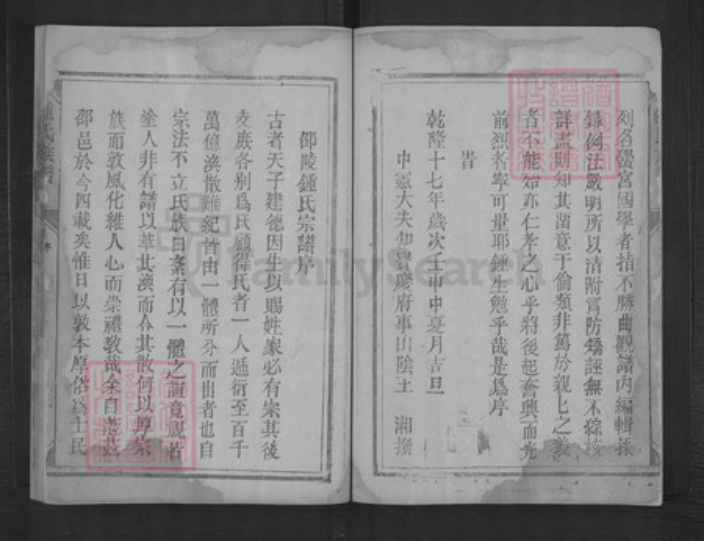 列名黌宮國學者指不勝曲觀譜內編輯採
錄例法嚴明所以清附冒防竊誣無不綜核
詳盡則知其留意于倫類非篤於親上之義
者不能始亦仁孝之心乎將後起奮興而光
前烈者寧可量耶鍾生勉乎哉是爲序
旹
乾隆十七年歲次壬申中夏月吉旦
中憲大夫知寶慶府事山陰王 湘撰
邵陵鍾氏宗譜序
古者天子建德因生以賜姓家必有宗其後
支庶各別爲氏顧得氏者一人遞衍至百千
萬億渙散雜紀皆由一體所分而出者也自
宗法不立氏族日紊有以一體之誼竟視若
塗人非有譜以萃其渙而合其散何以厚宗
族而敦風化維人心而崇禮教哉余自蒞茲
邵邑於今四載矣惟日以敦本厚俗爲士民
氏族譜
序
FamilySearch